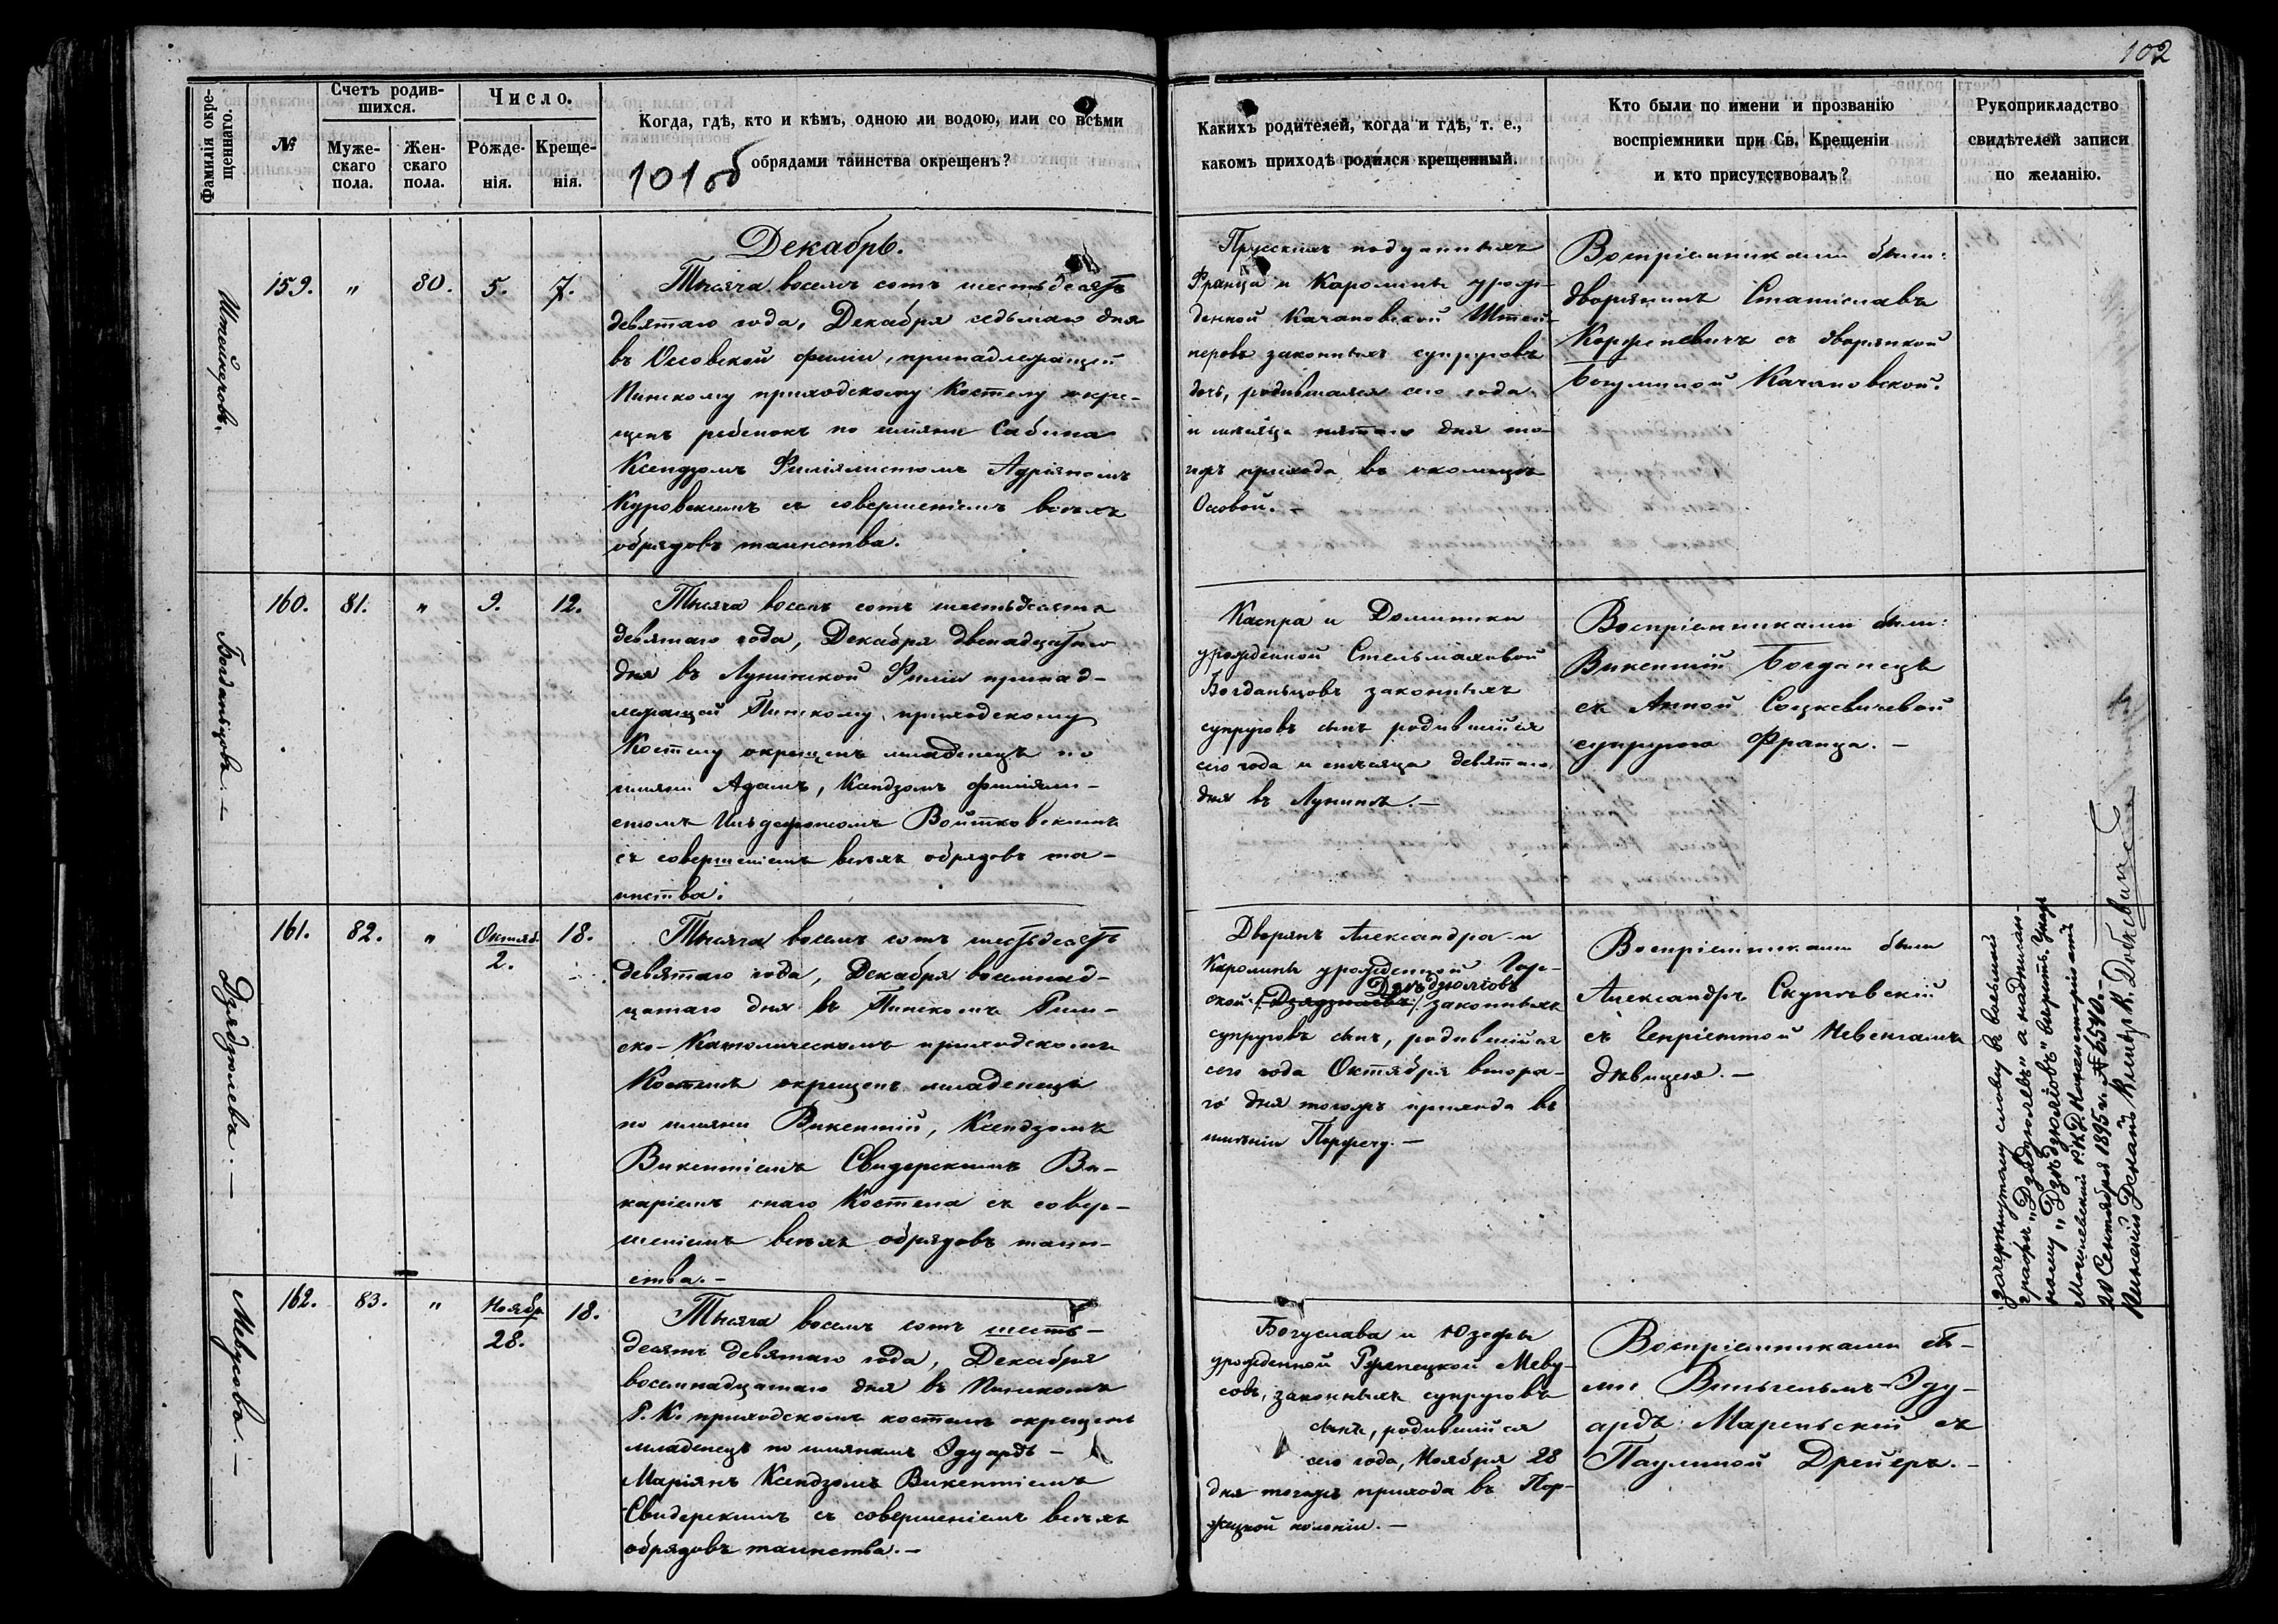 102
Фамилія окре-
щеннаго.
№
Счетъ родив-
шихся.
Муже-
скаго
пола.
Жен-
скаго
пола.
Число.
Рожде-
нія.
Креще-
нія.
Когда, гдѣ, кто и кѣмъ, одною ли водою, или со всѣми
обрядами таинства окрещенъ?
101 об
Какихъ родителей, когда и гдѣ, т. е.,
какомъ приходѣ родился крещенный.
Кто были по имени и прозванію
воспріемники при Св. Крещеніи
и кто присутствовалъ?
Рукоприкладство
свидѣтелей записи
по желанію.
Декабрь.
159. " 80. 5. 7.
Тысяча восемь сотъ шестьдесятъ
девятаго года, Декабря седьмаго дня
въ Осовской филіи, принадлежащей
Пинскому приходскому Костелу окре-
щенъ ребенокъ по имяни Сабина
Ксендзомъ Филіялистомъ Адріяномъ
Куровскимъ съ совершеніемъ всѣхъ
обрядовъ таинства.
Прусскихъ подданныхъ
Франца и Каролины урож-
денной Качановской Штей-
неровъ законныхъ супруговъ
дочь, родившаяся сего года
и мѣсяца пятаго дня то-
гожъ прихода въ околицѣ
Осовой.-
Воспріемниками были:
дворянинъ Станиславъ
Корженевичъ съ дворянкой
Богумилой Качановской.
Богданьцовъ.-
160. 81. " 9. 12.
Тысяча восемь сотъ шестьдесятъ
девятаго года, Декабря двенадцатаго
дня въ Лунинской Филіи принад-
лежащей Пинскому приходскому
Костелу окрещенъ младенецъ по
имяни Адамъ, Ксендзомъ филіяли-
стомъ Ильдефонсомъ Войтковскимъ
съ совершеніемъ всѣхъ обрядовъ та-
инства.
Каспра и Доминики
урожденной Стельмаховой
Богданьцовъ законныхъ
супруговъ сынъ родившійся
сего года и мѣсяца девятаго
дня въ Лунинѣ.-
Воспріемниками были:
Викентій Богданецъ
съ Анной Соцкевичевой
супругою Франца.-
Дзядзюлева.-
161. 82. " Октяб. 2. 18.
Тысяча восемь сотъ шестьдесятъ
девятаго года, Декабря восемнад-
цатаго дня въ Пинскомъ Рим-
ско-Католическомъ приходскомъ
Костелѣ окрещенъ младенецъ
по имяни Викентій, Ксендзомъ
Викентіемъ Свидерскимъ Ви-
каріемъ онаго Костела съ совер-
шеніемъ всѣхъ обрядовъ таин-
ства.-
Дворянъ Александра и
Каролины урожденной
ской законныхъ
супруговъ сынъ, родившійся
сего года Октября втора-
го дня тогожъ прихода въ
имѣніи
Воспріемниками были
Александръ
съ Генріеттой
дѣвицею.-
зачеркнутому слову въ восьмой
графѣ "Дзядзюлевъ" а надписан-
ному вѣрить, Указъ
Могилевской Р.К.Д. Консисторіи отъ
20 Сентября 1895 г. № 6540.-
Пинскій Деканъ Ксендзъ К. Добкевичъ
Мевусова.-
162. 83. " Ноябр. 28. 18.
Тысяча восемь сотъ шесть-
десятъ девятаго года, Декабря
восемнадцатаго дня въ Пинскомъ
Р. К. приходскомъ костелѣ окрещенъ
младенецъ по имянамъ Эдуардъ-
Маріянъ Ксендзомъ Викентіемъ
Свидерскимъ съ совершеніемъ всѣхъ
обрядовъ таинства.-
Богуслава и Юзефы
урожденной Меву-
совъ, законныхъ супруговъ
сынъ, родившійся
сего года, Ноября 28
дня тогожъ прихода въ
колоніи.-
Воспріемниками бы-
ли Вильгельмъ-Эду-
ардъ съ
Паулиной Дрейеръ.-